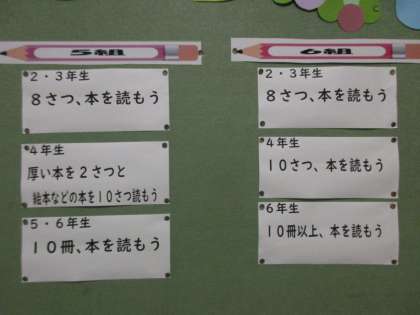 5組
2・3年生
8さつ、本を読もう
4年生
厚い本を2さつと
絵本などの本を10さつ読もう
5・6年生
10冊、本を読もう
6組
2・3年生
8さつ、本を読もう
4年生
10さつ、本を読もう
6年生
10冊以上、本を読もう